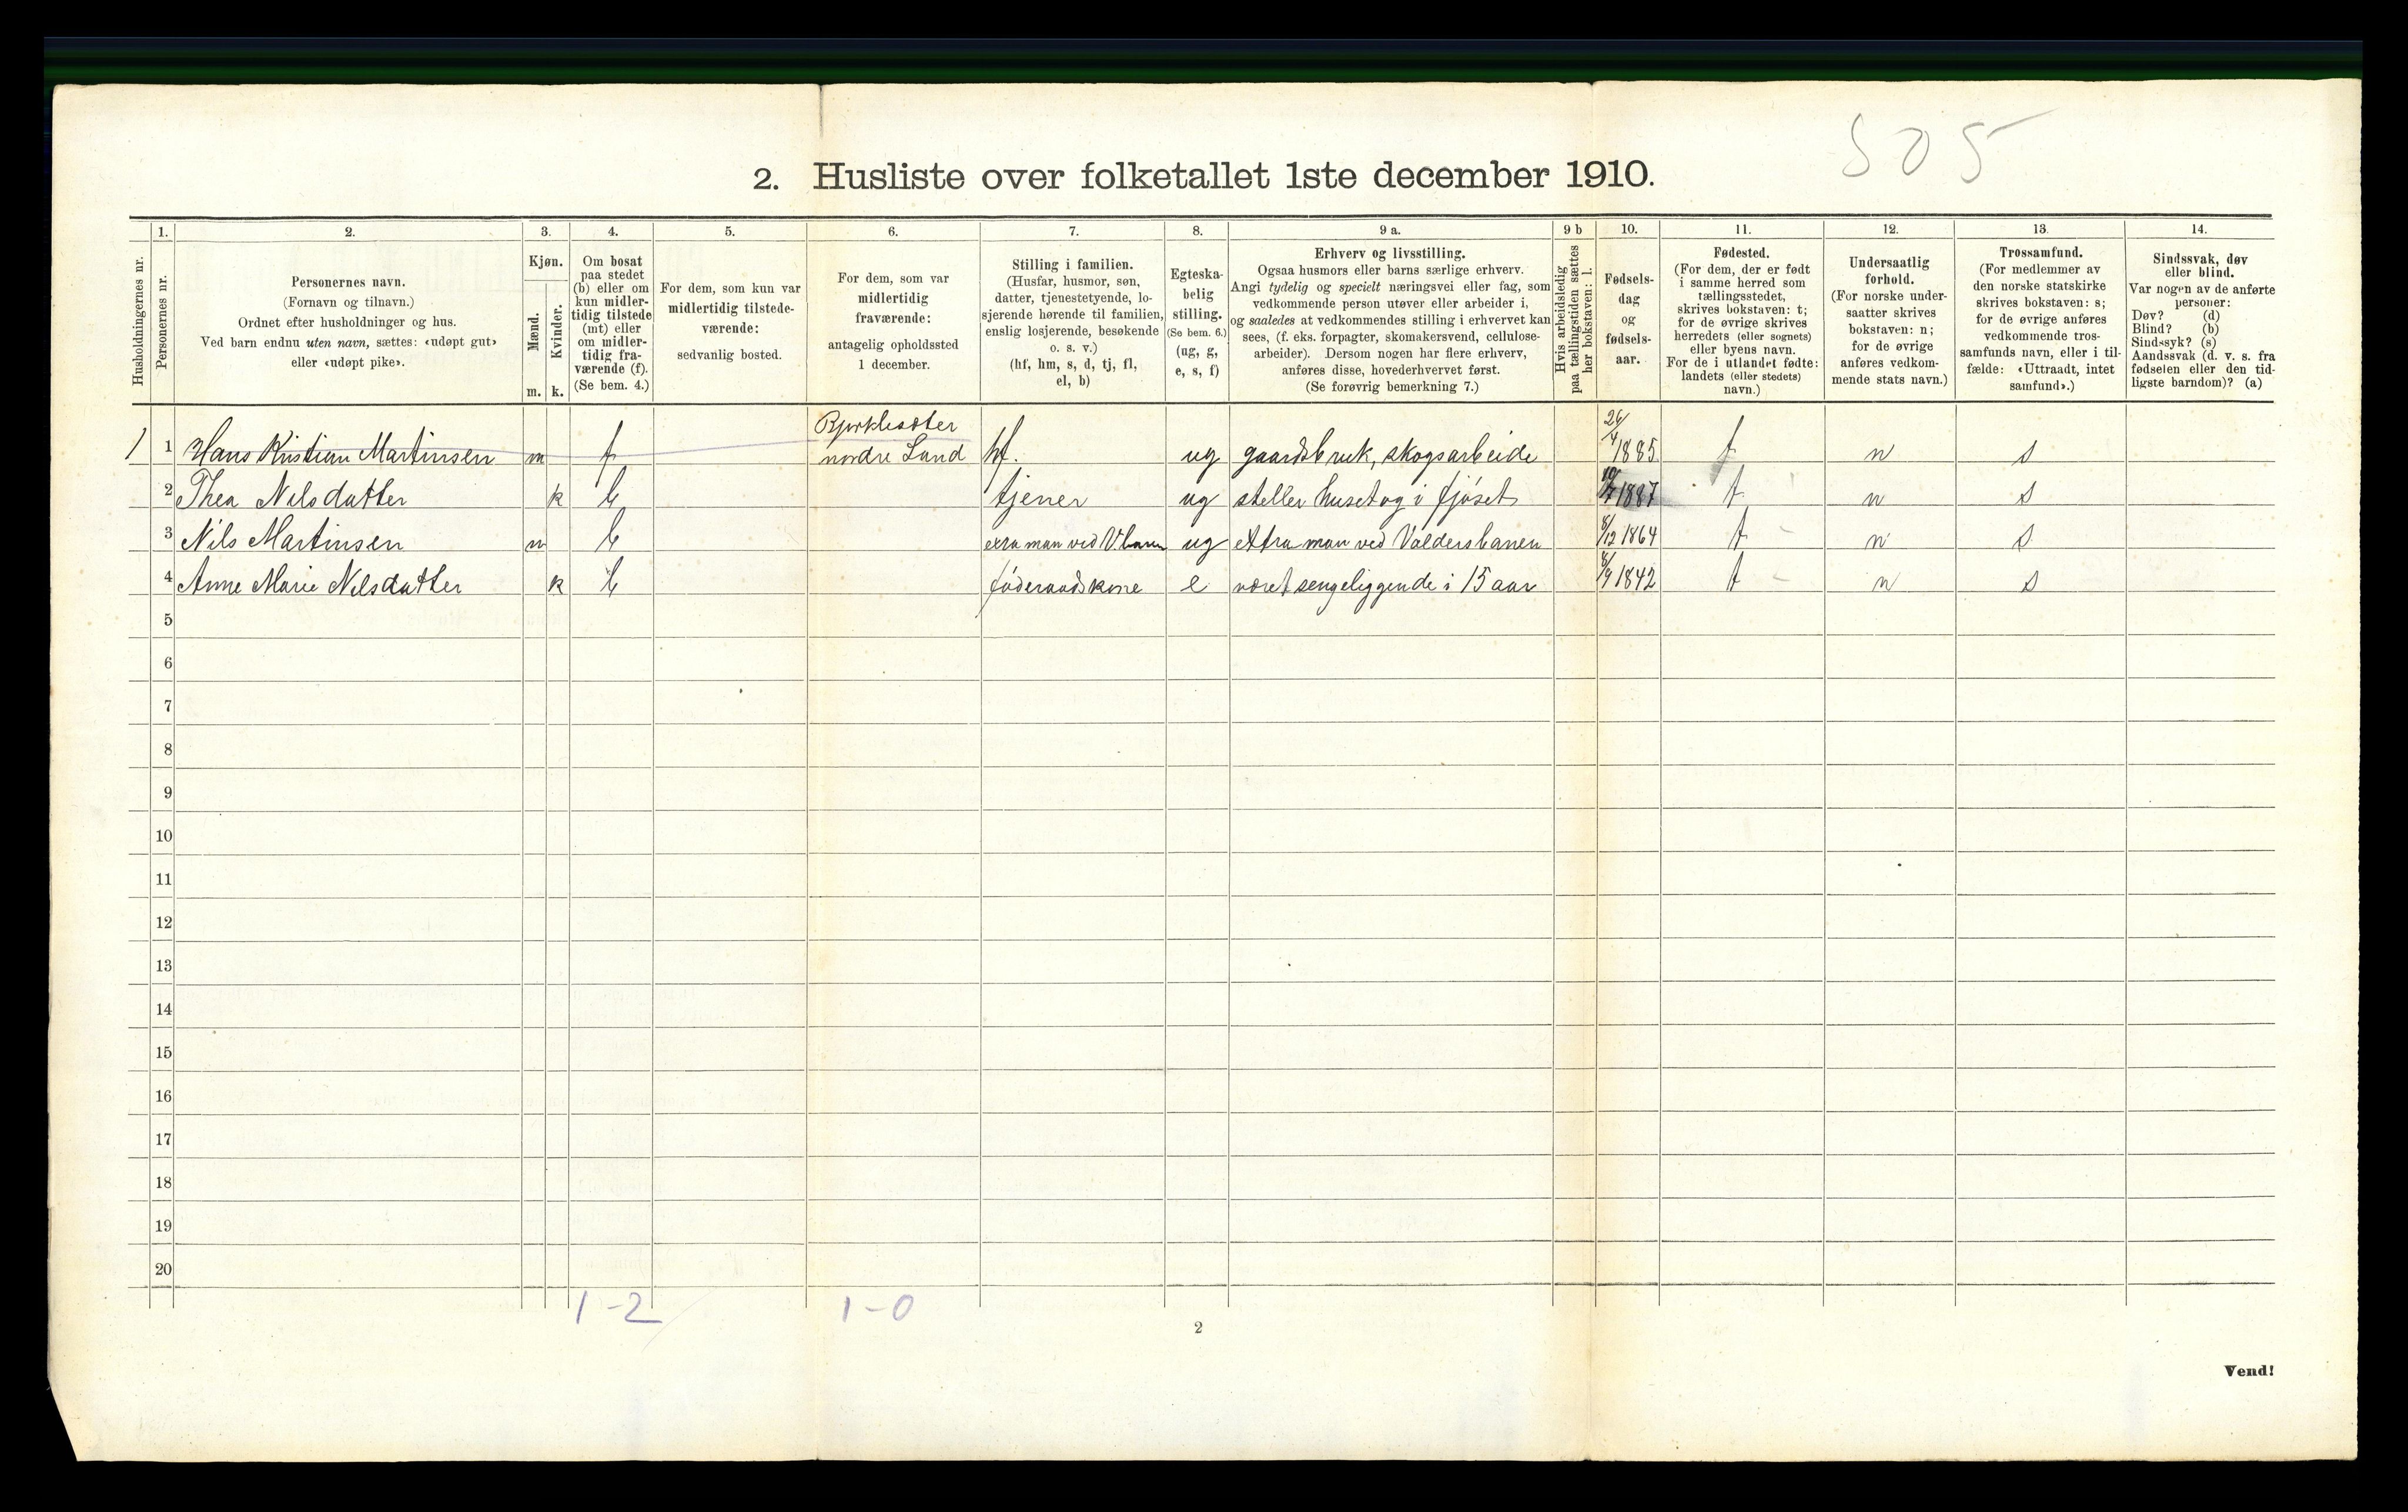 505
2. Husliste over folketallet 1ste december 1910.
Husholdningernes nr.
1.
Personernes nr.
2.
Personernes navn.
(Fornavn og tilnavn.)
Ordnet efter husholdninger og hus.
Ved barn endnu uten navn, sættes: «udøpt gut»
eller «udøpt pike».
3.
Kjøn.
Mænd.
Kvinder.
m. k.
4.
Om bosat
paa stedet
(b) eller om
kun midler-
tidig tilstede
(mt) eller
om midler-
tidig fra-
værende (f).
(Se bem. 4.)
5.
For dem, som kun var
midlertidig tilstede-
værende:
sedvanlig bosted.
6.
For dem, som var
midlertidig
fraværende:
antagelig opholdssted
1 december.
7.
Stilling i familien.
(Husfar, husmor, søn,
datter, tjenestetyende, lo-
sjerende hørende til familien,
enslig losjerende, besøkende
o. s. v.)
(hf, hm, s, d, tj, fl,
el, b)
8.
Egteska-
belig
stilling.
(Se bem. 6.)
(ug, g,
e, s, f)
9 a.
Erhverv og livsstilling.
Ogsaa husmors eller barns særlige erhverv.
Angi tydelig og specielt næringsvei eller fag, som
vedkommende person utøver eller arbeider i,
og saaledes at vedkommendes stilling i erhvervet kan
sees, (f. eks. forpagter, skomakersvend, cellulose-
arbeider). Dersom nogen har flere erhverv,
anføres disse, hovederhvervet først.
(Se forøvrig bemerkning 7.)
9 b
Hvis arbeidsledig
paa tællingstiden sættes
her bokstaven: l.
10.
Fødsels-
dag
og
fødsels-
aar.
11.
Fødested.
(For dem, der er født
i samme herred som
tællingsstedet,
skrives bokstaven: t;
for de øvrige skrives
herredets (eller sognets)
eller byens navn.
For de i utlandet fødte:
landets (eller stedets)
navn.)
12.
Undersaatlig
forhold.
(For norske under-
saatter skrives
bokstaven: n;
for de øvrige
anføres vedkom-
mende stats navn.)
13.
Trossamfund.
(For medlemmer av
den norske statskirke
skrives bokstaven: s;
for de øvrige anføres
vedkommende tros-
samfunds navn, eller i til-
fælde: «Uttraadt, intet
samfund».)
14.
Sindssvak, døv
eller blind.
Var nogen av de anførte
personer:
Døv? (d)
Blind? (b)
Sindssyk? (s)
Aandssvak (d. v. s. fra
fødselen eller den tid-
ligste barndom)? (a)
1 1 Hans Kristian Martinsen m f nordre Land hf. ug gaardsbruk, skogsarbeide 26/4 1885 t n s
2 Thea Nilsdatter k b tjener ug steller huset og i fjöset 1887 t n s
3 Nils Martinsen m b exra man ved V.banen ug extra man ved Valdersbanen 8/12 1864 t n s
4 Anne Marie Nilsdatter k b föderaadskone e været sengeliggende i 15 aar 1842 t n s
5
6
7
8
9
10
11
12
13
14
15
16
17
18
19
20
1-2 1-0
2
Vend!